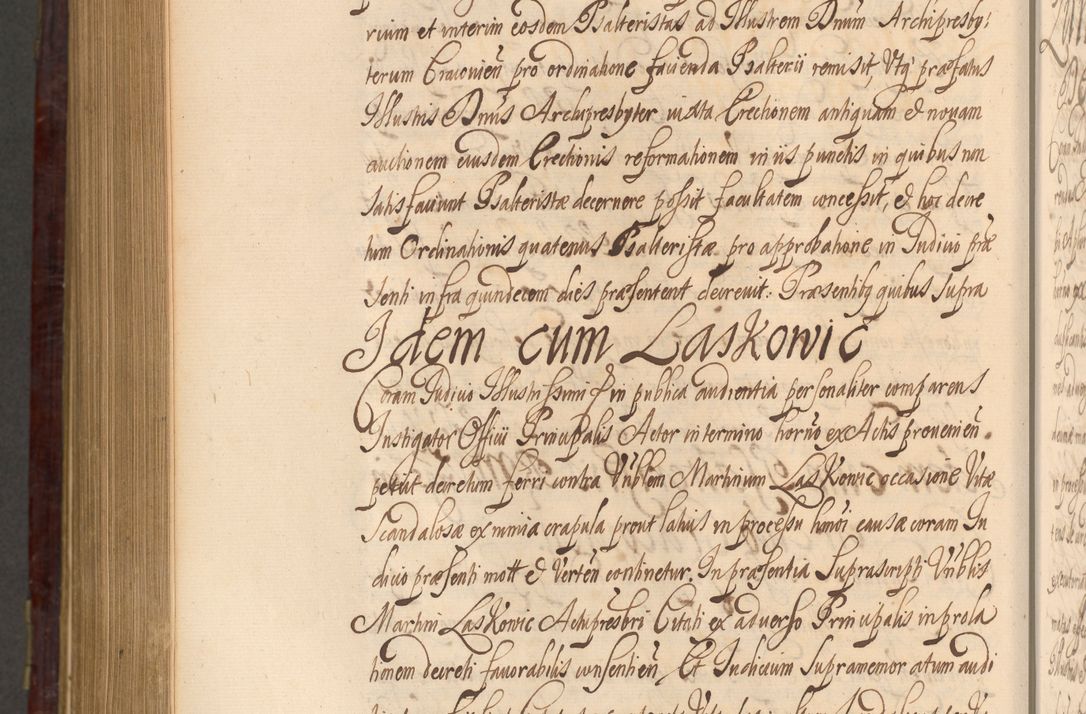 rium et interim eosdem Psalteristas ad Illustrem Dnum Archipresby:
terum Cracovien pro ordinatione facienda Psalterii remisit, Utq præfatus
Illustris Dnus Archipresbyter iuxta Erectionem antiquam et novam
auctionem eiusdem Erectionis reformationem in iis punctis in quibus non
satisfaciunt Psalteristæ decernere possit facultatem concessit, et hoc decre
tum Ordinationis quatenus Psalteristæ pro approbatione in Iudicio præ
senti infra quindecem dies præsentent decrevit: Præsentibq quibus supra
Idem cum Laskowic
Coram Iudicio Illustrissimi in publica audientia personaliter comparens
Instigator Officii Principalis Actor in termino horno ex Actis provenien.
petiit decretum ferri contra Vnblem Martinum Laskowic occasione Vitæ
Scandalosæ ex nimia crapula prout latius in processu hmoi causæ coram Iu
dicio præsenti mott et Verten continetur. In præsentia Suprascripti Vnblis
Martini Laskowic Actupresbri Citati ex adverso Principalis in prola
tionem decreti favorabilis consentien, Et Iudicium Supramemoratum audi